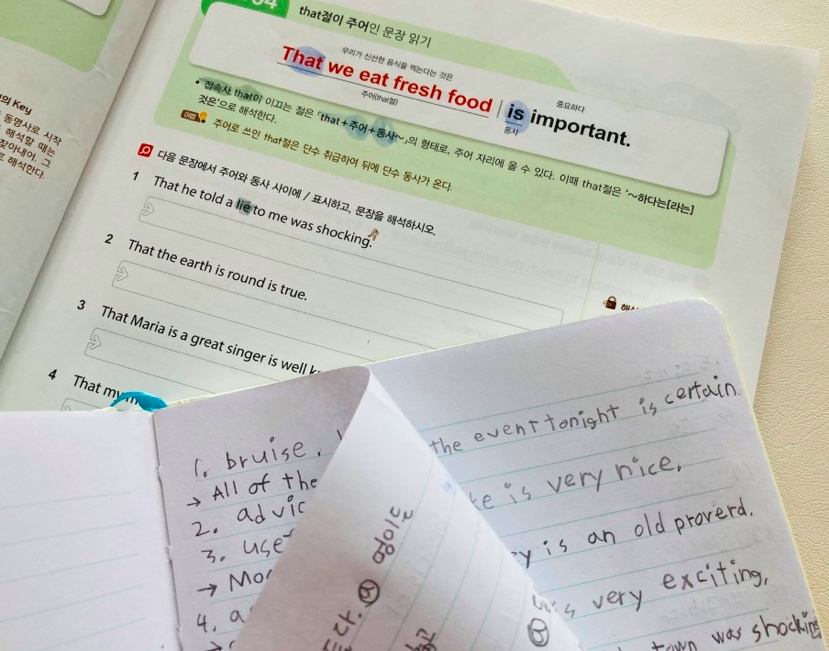 04
that절이 주어인 문장 읽기
우리가 신선한 음식을 먹는다는 것은
중요하다
That we eat fresh food | is important.
주어(that절)
동사
• 접속사 that이 이끄는 절은 「that+주어+동사~」의 형태로, 주어 자리에 올 수 있다. 이때 that절은 '~하다는[라는]
것은'으로 해석한다.
어법 주어로 쓰인 that절은 단수 취급하여 뒤에 단수 동사가 온다.
다음 문장에서 주어와 동사 사이에 / 표시하고, 문장을 해석하시오.
1 That he told a lie to me was shocking.
2 That the earth is round is true.
3 That Maria is a great singer is well
4 That my
의 Key
동명사로 시작
해석할 때는
찾아내어, 그
해석한다.
1. bruise.
→ All of the
2. advic
3. use
→ Mo
4. a
the event tonight is certain.
is very nice,
is an old proverd.
very exciting,
town was shocking